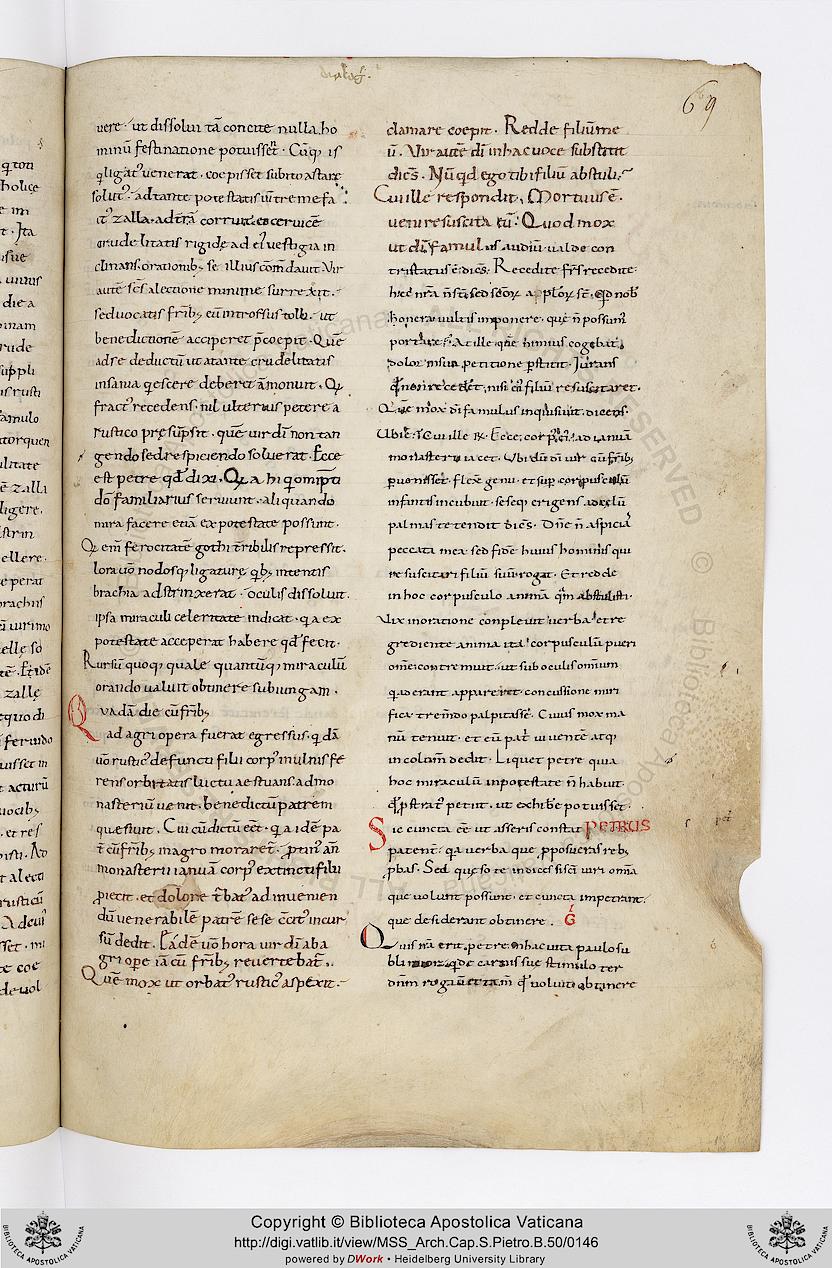 69
uere. ut dissolui tā concite nulla ho
minū festinatione potuisset. Cūq; is
q ligat' uenerat. coepisset subito astare
solut'. ad tante potestatis uī tremefa
ct' zalla. ad trā corruit. & ceruicē
crudelitatis rigidę ad ei' uestigia in
clinans. orationib; se illius cōmdauit. Vir
autē scs a lectione minime surrexit.
sed uocatis frib; eū introrsus tolli. ut
benedictionē acciperet pcoepit. Quē
ad se deductū ut a tante crudelitatis
insania qescere deberet āmonuit. Qi
fract' recedens. nil ulterius petere a
rustico pręsupsit. quē uir dī non tan
gendo sed respiciendo soluerat. Ecce
est petre qd dixi. Qa hi q omipti
dō familiarius seruiunt. aliquando
mira facere etiā ex potestate possunt.
Qi em ferocitatē gothi tribilis repressit.
lora uō nodosq; ligaturę qb; intentis
brachia adstrinxerat. oculis dissoluit.
ipsa miraculi celeritate indicat. qa ex
potestate acceperat habere qd fecit.
Rursū quoq; quale quantūq; miraculū
orando ualuit obtinere subiungam.
Quadā die cū frib;
ad agri opera fuerat egressus. q dā
uō rustic' defuncti filii corp' in ulnis fe
rens orbitatis luctu aestuans. ad mo
nasteriū uenit. benedictū patrem
quęsiuit. Cui cū dictū eet. qa idē pa
t cū frib; in agro moraret. ptin' an
monasterii ianuā corp' extincti filii
piecit. et dolore tbat' ad inuenien
dū uenerabilē patrē sese cit' in cur
sū dedit. Eadē uō hora uir dī ab a
gri ope iā cū frib; reuertebat.
Quē mox ut orbat' rustic' aspexit.
clamare coepit. Redde filiū me
ū. Vir autē dī in hac uoce substitit
dics. Nūqd ego tibi filiū abstuli?
Cui ille respondit, Mortuus ē.
ueni resuscita eū. Quod mox
ut dī famulus audiuit. ualde con
tristatus ē dics. Recedite frs recedite.
hęc nra n st. sed scōr aplōr st. Qd nob
honera uultis imponere, que n possum'
portare? At ille quē nimius cogebat
dolor in sua petitione pstitit. Iurans
qd non recedet, nisi ei' filiū resuscitaret.
Quē mox dī famulus inquisiuit. dicens.
Vbi ē? Cui ille R. Ecce corp' ei' ad ianuā
monasterii iacet. Vbi dū dī uir cū frib;
puenisset. flexit genu. et sup corpusculū
infantis incubuit. seseq; erigens ad celū
palmas tetendit dicēs. Dne n aspicias
peccata mea sed fidē huius hominis qui
resuscitari filiū suū rogat. Et redde
in hoc corpusculo animā quā abstulisti.
Vix in oratione conpleuit uerba. et re
grediente anima ita corpusculū pueri
omē contremuit. ut sub oculis omnium
q aderant appareret concussione miri
fica tremendo palpitasse. Cuius mox ma
nū tenuit. et eū patri uiuentē atq;
incolumē dedit. Liquet petre quia
hoc miraculū in potestate n habuit.
qd pstrat' petiit. ut exhibe potuisset.
Sic cuncta ee ut asseris constat PETRUS
patent. qa uerba que pposueras reb;
pbas. Sed queso te indices si sci uiri omā
que uolunt possunt. et cuncta impetrant.
que desiderant obtinere. G
Quis nā erit petre in hac uita paulo su
blimior. q de carnis sue stimulo ter
dnm rogauit et tam qd uoluit obtinere
Copyright © Biblioteca Apostolica Vaticana
http://digi.vatlib.it/view/MSS_Arch.Cap.S.Pietro.B.50/0146
powered by DWork • Heidelberg University Library